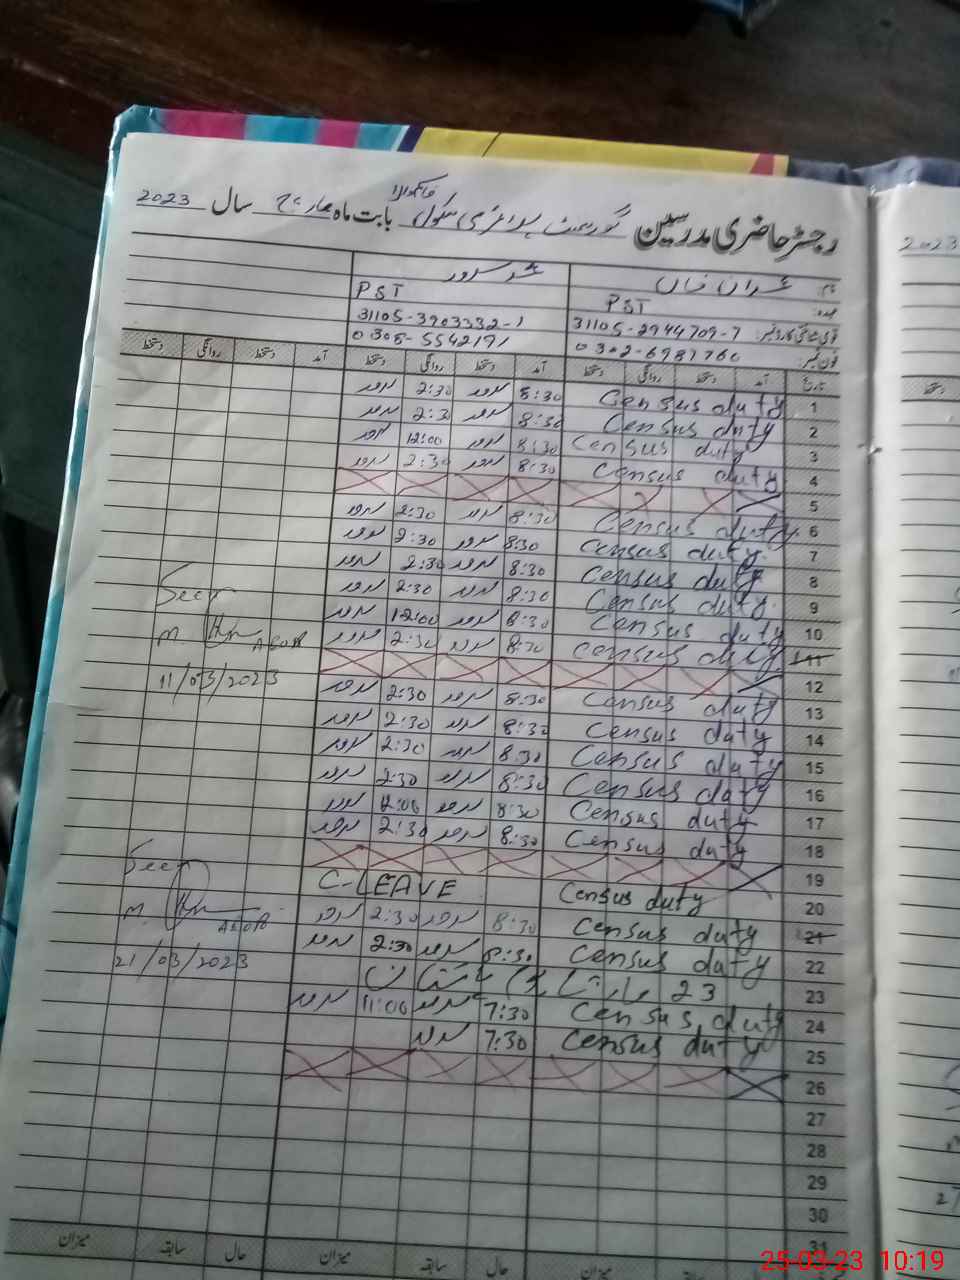 رجسٹر حاضری مدرسین گورنمنٹ پرائمری سکول بابت ماہ مارچ سال 2023
نام: عمران خان سرور
عہدہ: PST PST
قومی شناختی کارڈ نمبر: 31105-2944709-7 31105-3903332-1
فون نمبر: 0302-6987760 0308-5542191
تاریخ آمد دستخط روانگی دستخط آمد دستخط روانگی دستخط آمد دستخط روانگی دستخط
1 Census duty 8:30 سرور 2:30 سرور
2 Census duty 8:30 سرور 2:30 سرور
3 Census duty 8:30 سرور 12:00 سرور
4 Census duty 8:30 سرور 2:30 سرور
5
6 Census duty 8:30 سرور 2:30 سرور
7 Census duty 8:30 سرور 2:30 سرور
8 Census duty 8:30 سرور 2:30 سرور
9 Census duty 8:30 سرور 2:30 سرور
10 Census duty 8:30 سرور 12:00 سرور
11 Census duty 8:30 سرور 2:30 سرور
12
13 Census duty 8:30 سرور 2:30 سرور
14 Census duty 8:30 سرور 2:30 سرور
15 Census duty 8:30 سرور 2:30 سرور
16 Census duty 8:30 سرور 2:30 سرور
17 Census duty 8:30 سرور 12:00 سرور
18 Census duty 8:30 سرور 2:30 سرور
19
20 Census duty C-LEAVE
21 Census duty 8:30 سرور 2:30 سرور
22 Census duty 8:30 سرور 2:30 سرور
23 23 مارچ یوم پاکستان
24 Census duty 7:30 سرور 11:00 سرور
25 Census duty 7:30 سرور
26
27
28
29
30
31
میزان سابقہ حال میزان سابقہ حال میزان
Seen
M.
11/03/2023
Seen
M.
21/03/2023
2023
25-03-23 10:19